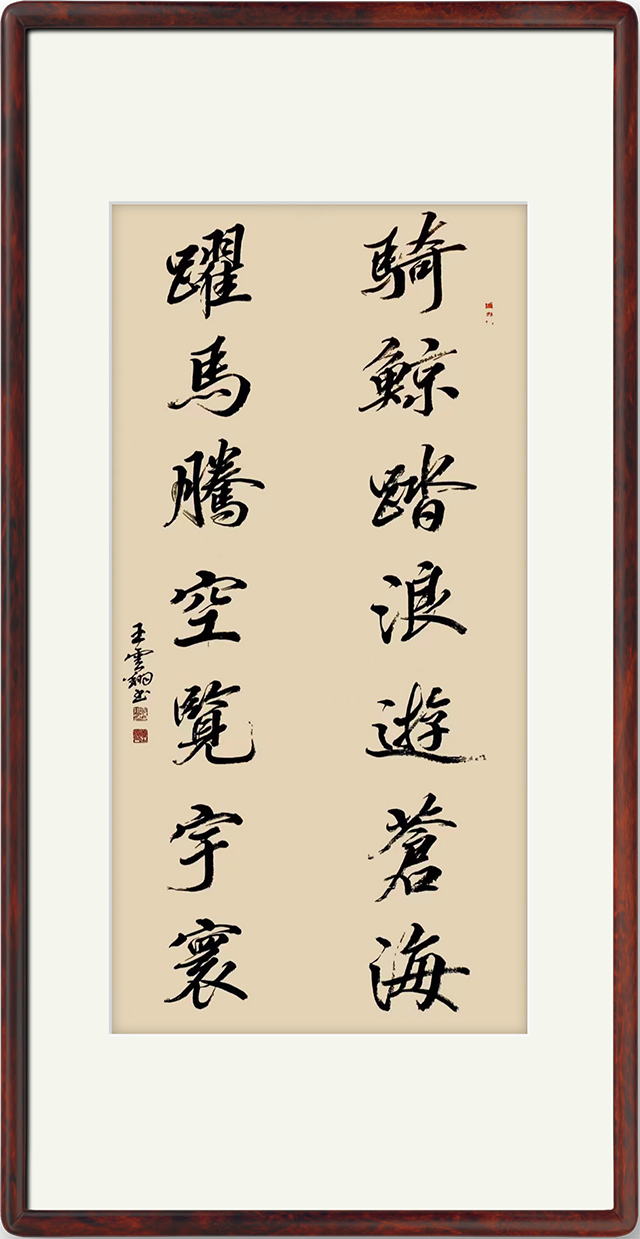 騎鯨踏浪遊蒼海
躍馬騰空覽宇寰
王雲翔书